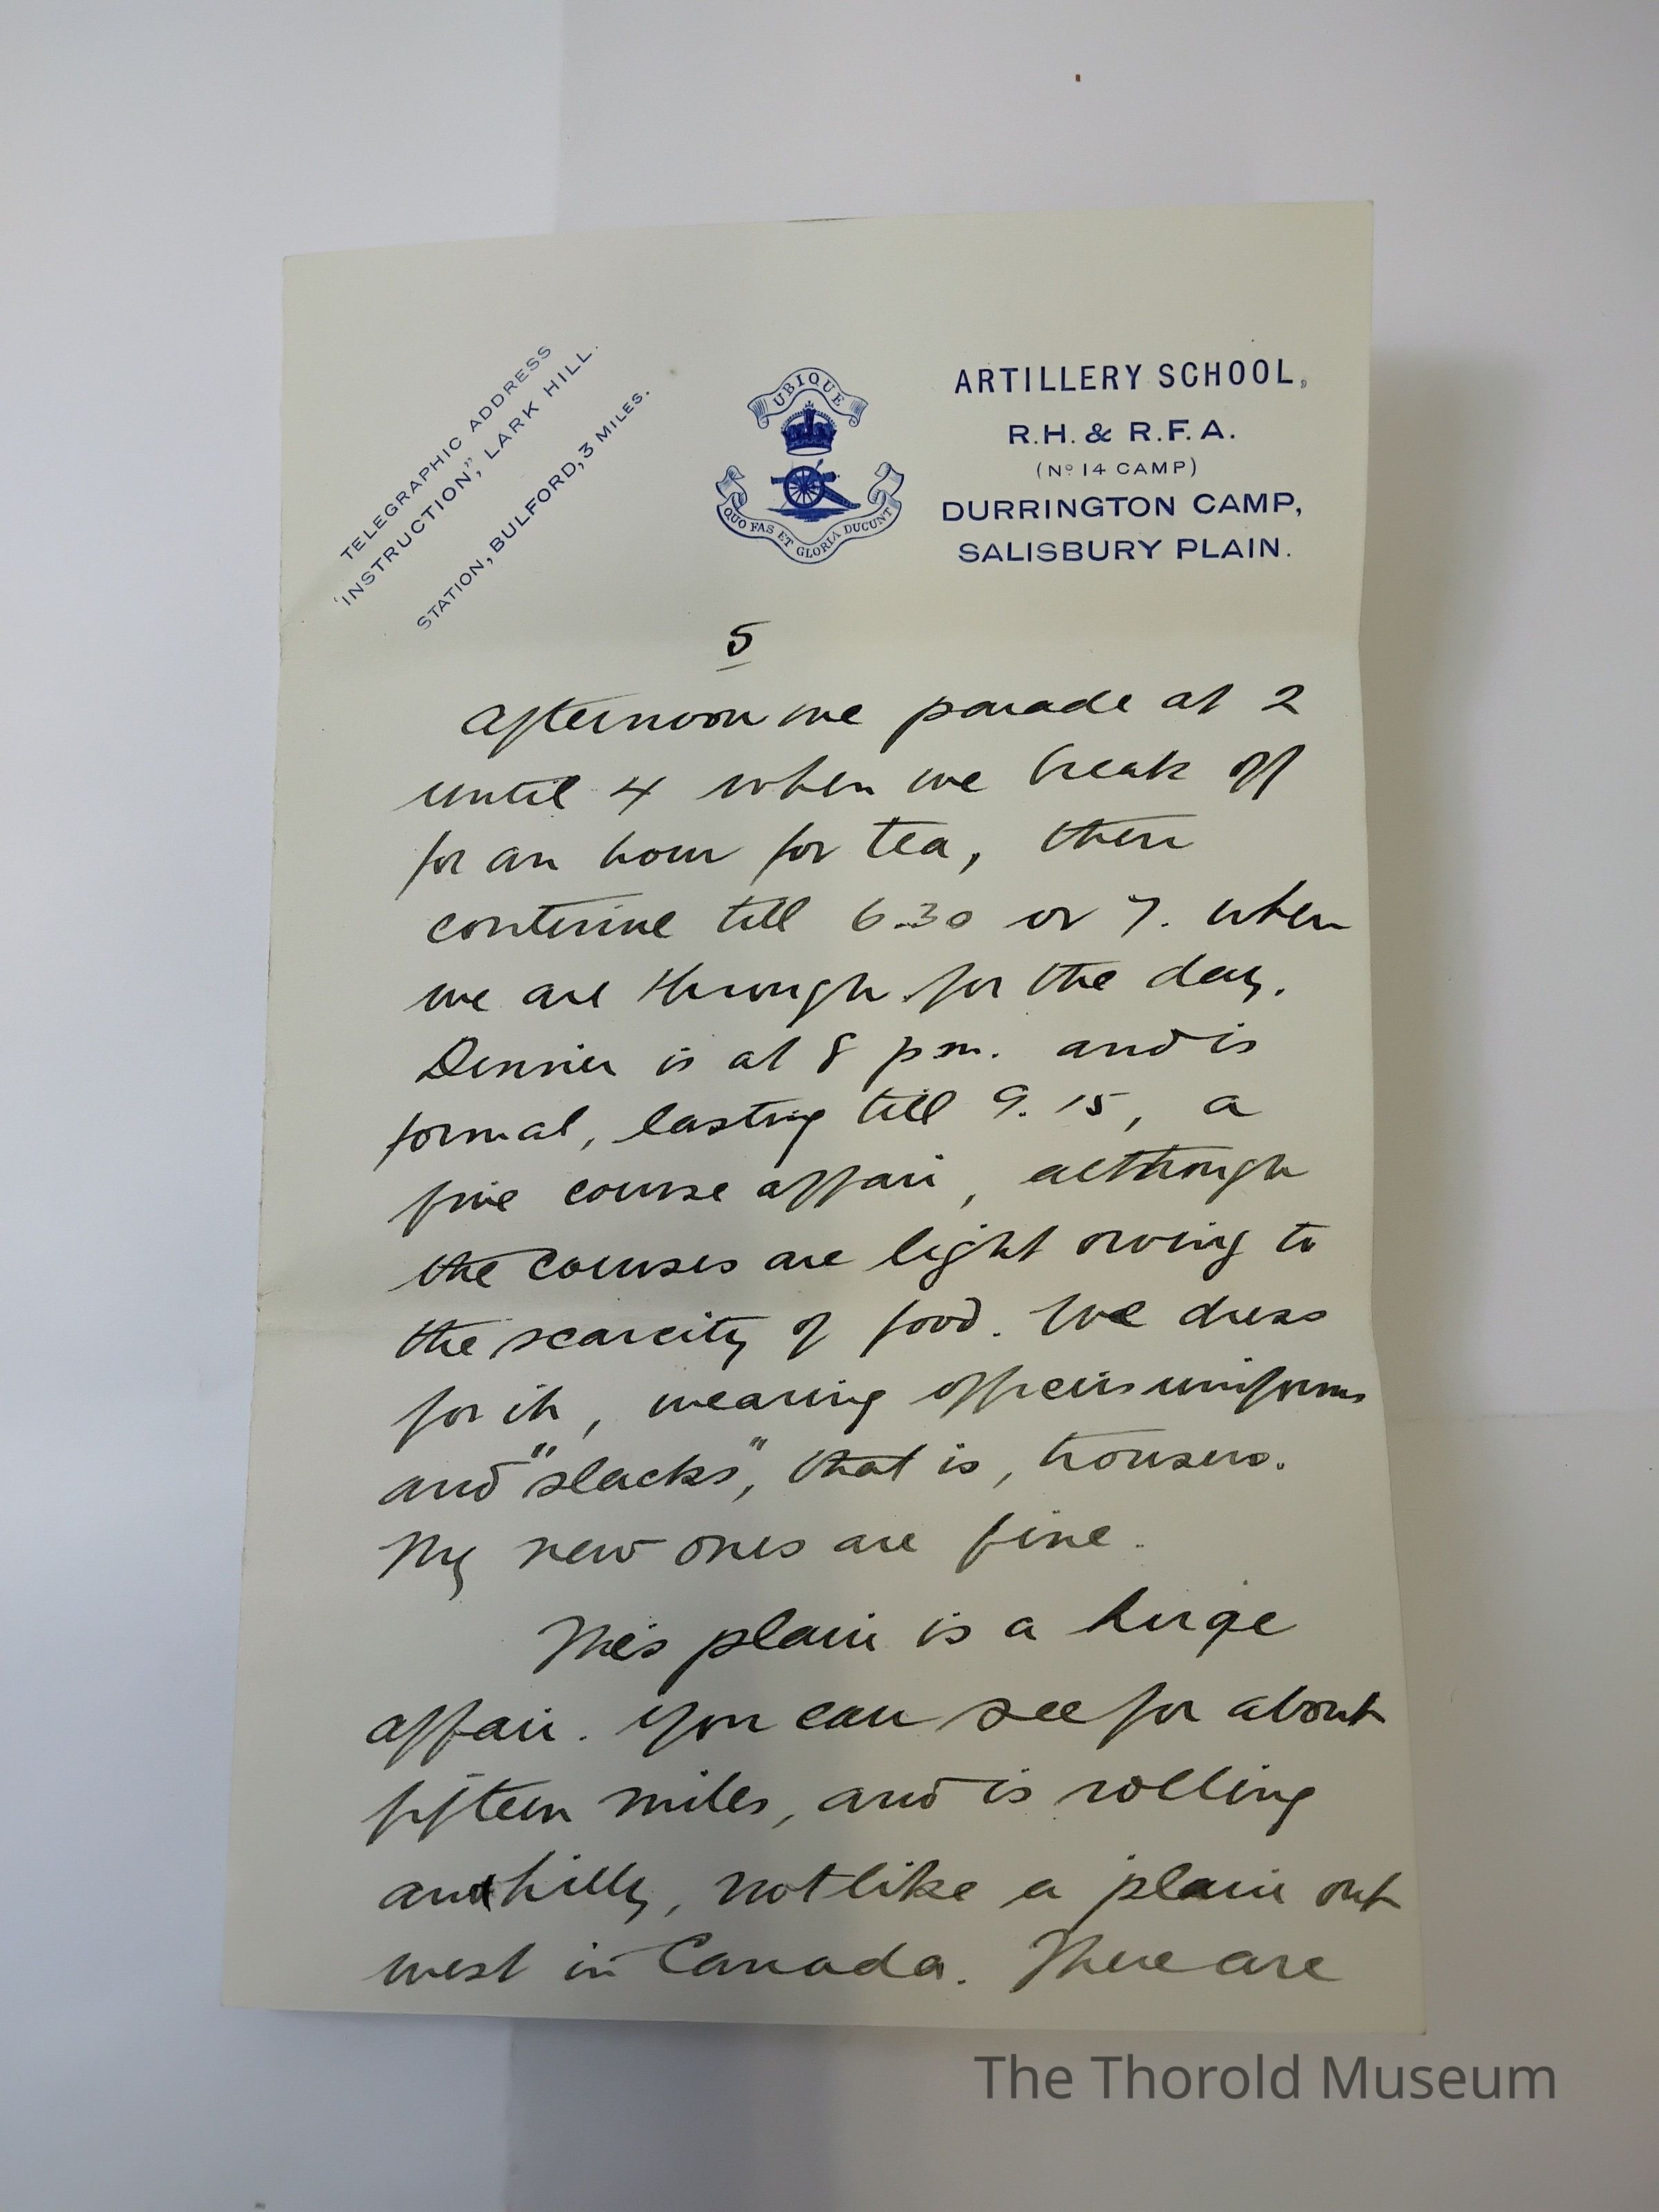 TELEGRAPHIC ADDRESS
"INSTRUCTION," LARK HILL.
STATION, BULFORD, 3 MILES.
UBIQUE
QUO FAS ET GLORIA DUCUNT
ARTILLERY SCHOOL,
R.H. & R.F.A.
(No 14 CAMP)
DURRINGTON CAMP,
SALISBURY PLAIN.
5
afternoon we parade at 2
until 4 when we break off
for an hour for tea, then
continue till 6.30 or 7. when
we are through for the day.
Dinner is at 8 p.m. and is
formal, lasting till 9.15, a
five course affair, although
the courses are light owing to
the scarcity of food. We dress
for it, wearing officers uniforms
and "slacks", that is, trousers.
My new ones are fine.
This plain is a huge
affair. You can see for about
fifteen miles, and is rolling
and hilly, not like a plain out
west in Canada. There are
The Thorold Museum